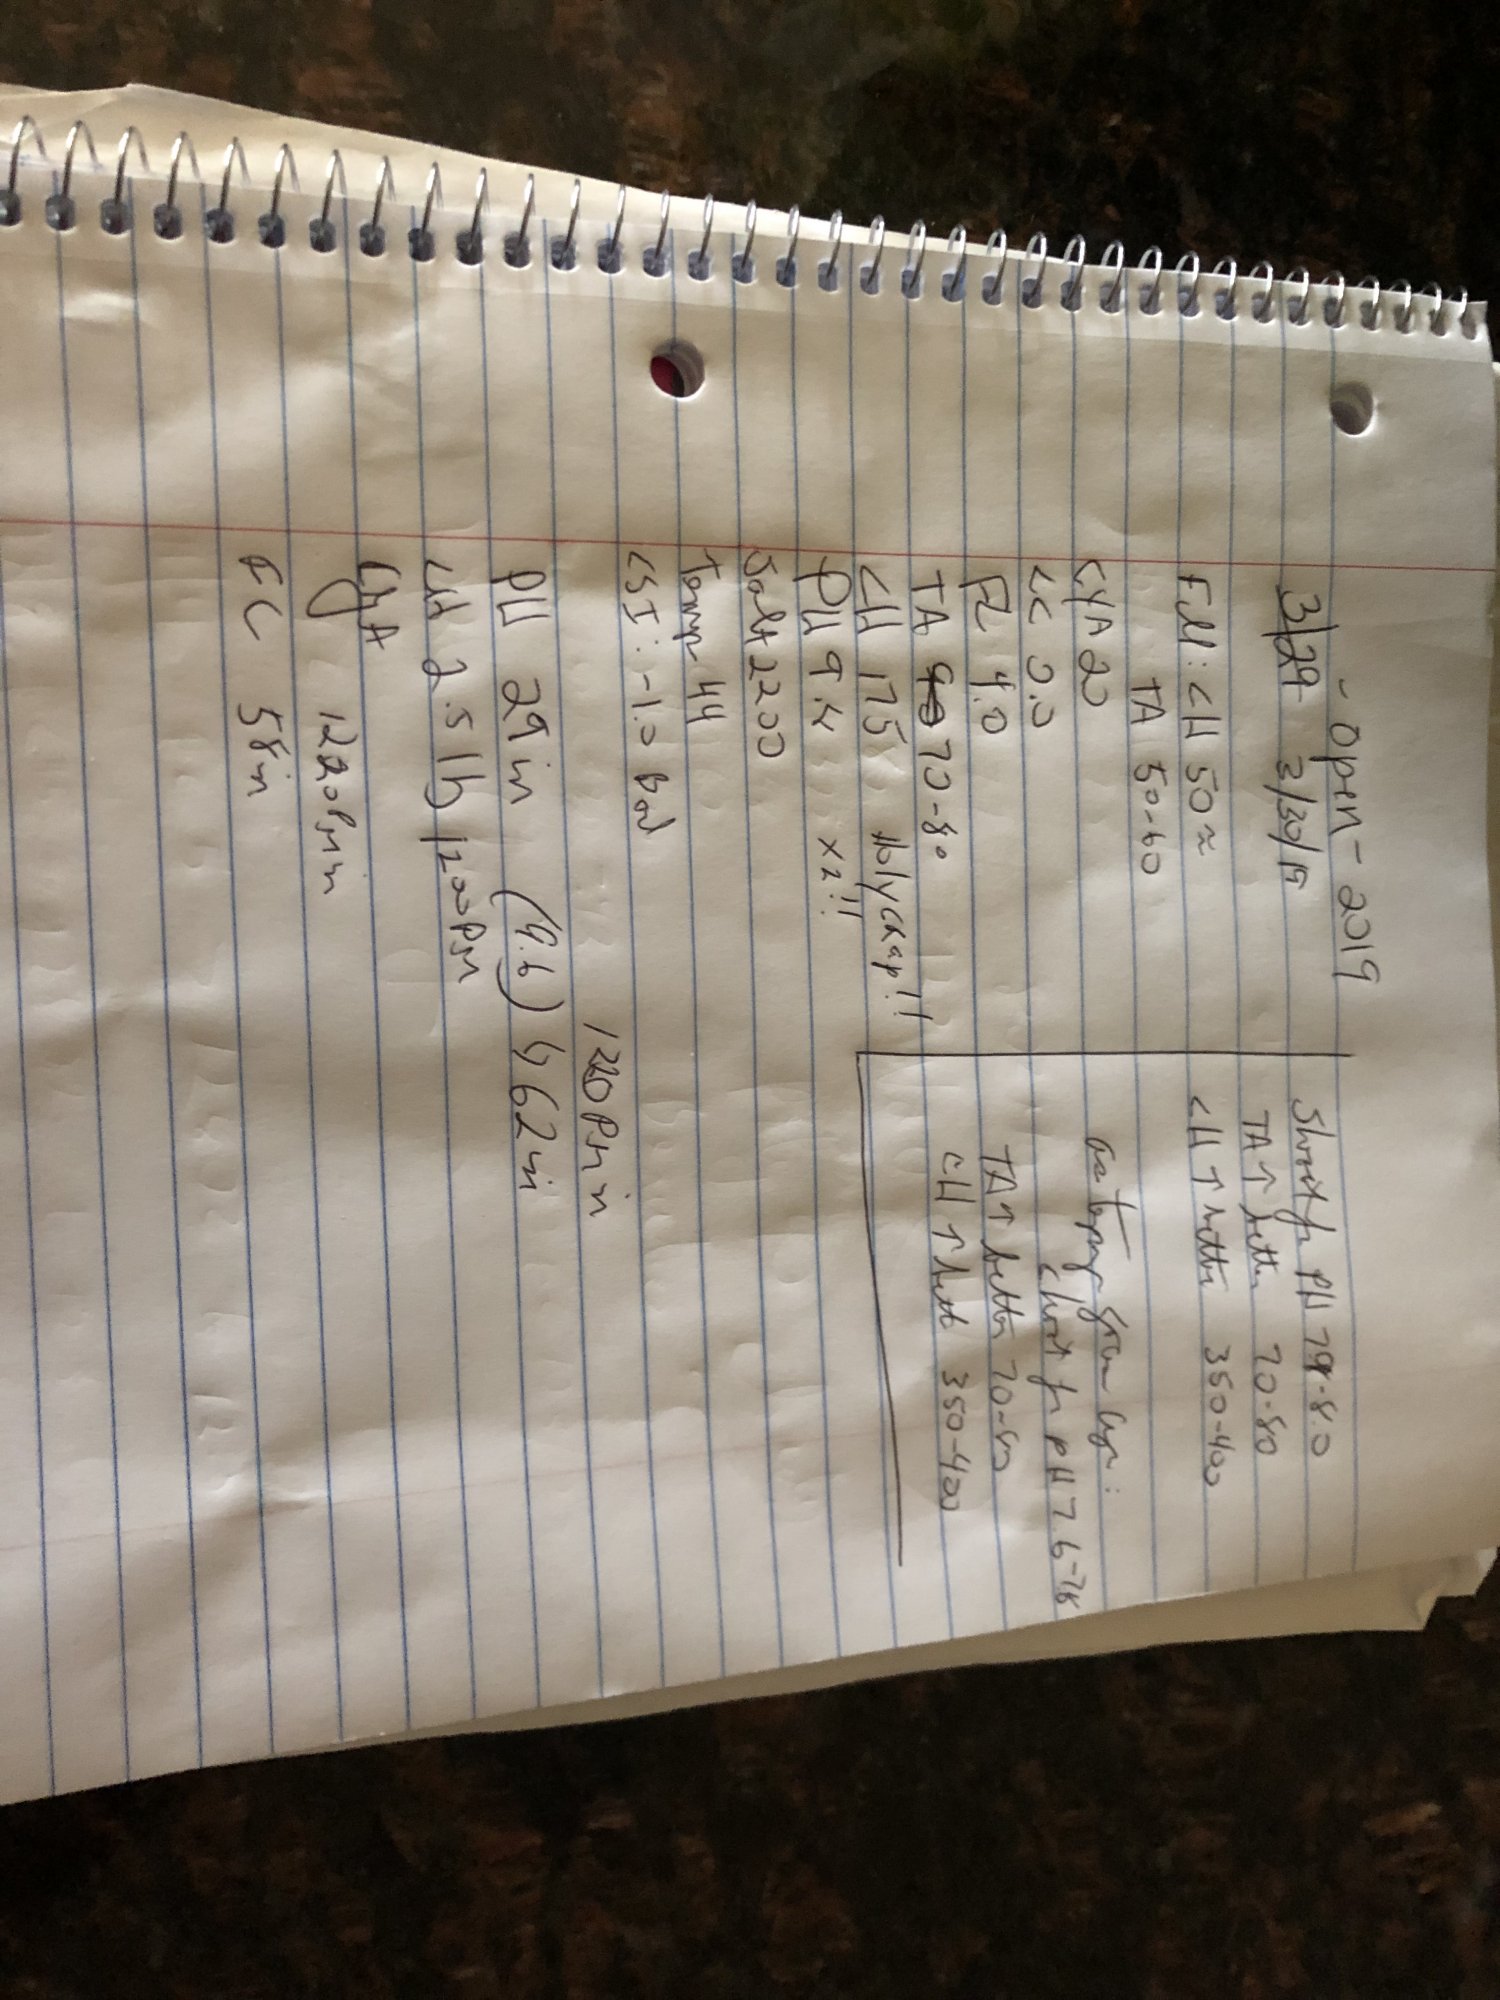 - Open - 2019
3/29 3/30/19
Fill: CH 50 ~
TA 50-60
CYA 20
CC 0.0
FC 4.0
TA 70-80
CH 175 Holy crap!!
PH 9.2 x2!!
Salt 2200
Temp 44
CSI: -1.0 Bad
1220 PM in
PH 29 in (9.6) 62 in
CH 2.5 lb 1200 PM
CYA
1220 PM in
FC 58 in
Shoot for PH 7.8-8.0
TA ↑ better 70-80
CH ↑ better 350-400
as temp
shoot for pH 7.6-7.8
TA ↑ better 70-80
CH ↑ better 350-400